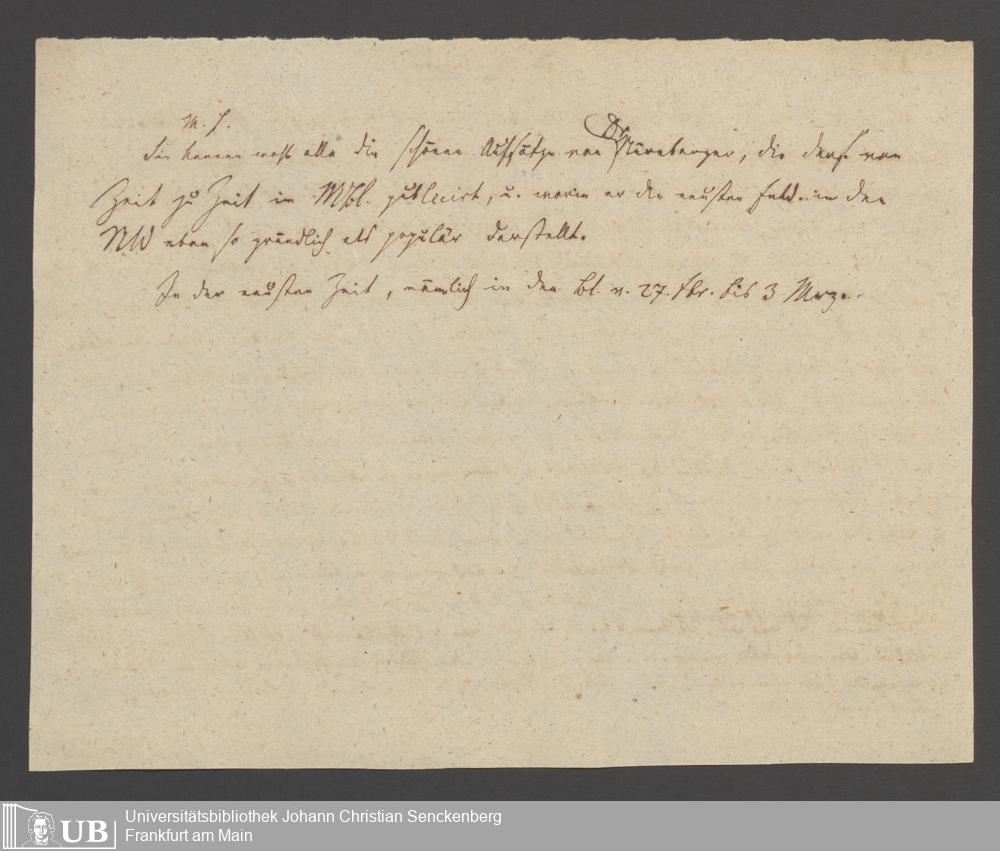 M. H.
Sie kennen wohl alle die schönen Aufsätze von Dr Nürnberger, die ders. von
Zeit zu Zeit im MBl. publicirt, u. worin er die neusten Entd. in den
NW eben so gründlich als populär darstellt.
In der neusten Zeit, nämlich in den Bl. v. 27. Fbr. bis 3 Mrz.
Universitätsbibliothek Johann Christian Senckenberg
Frankfurt am Main
UB